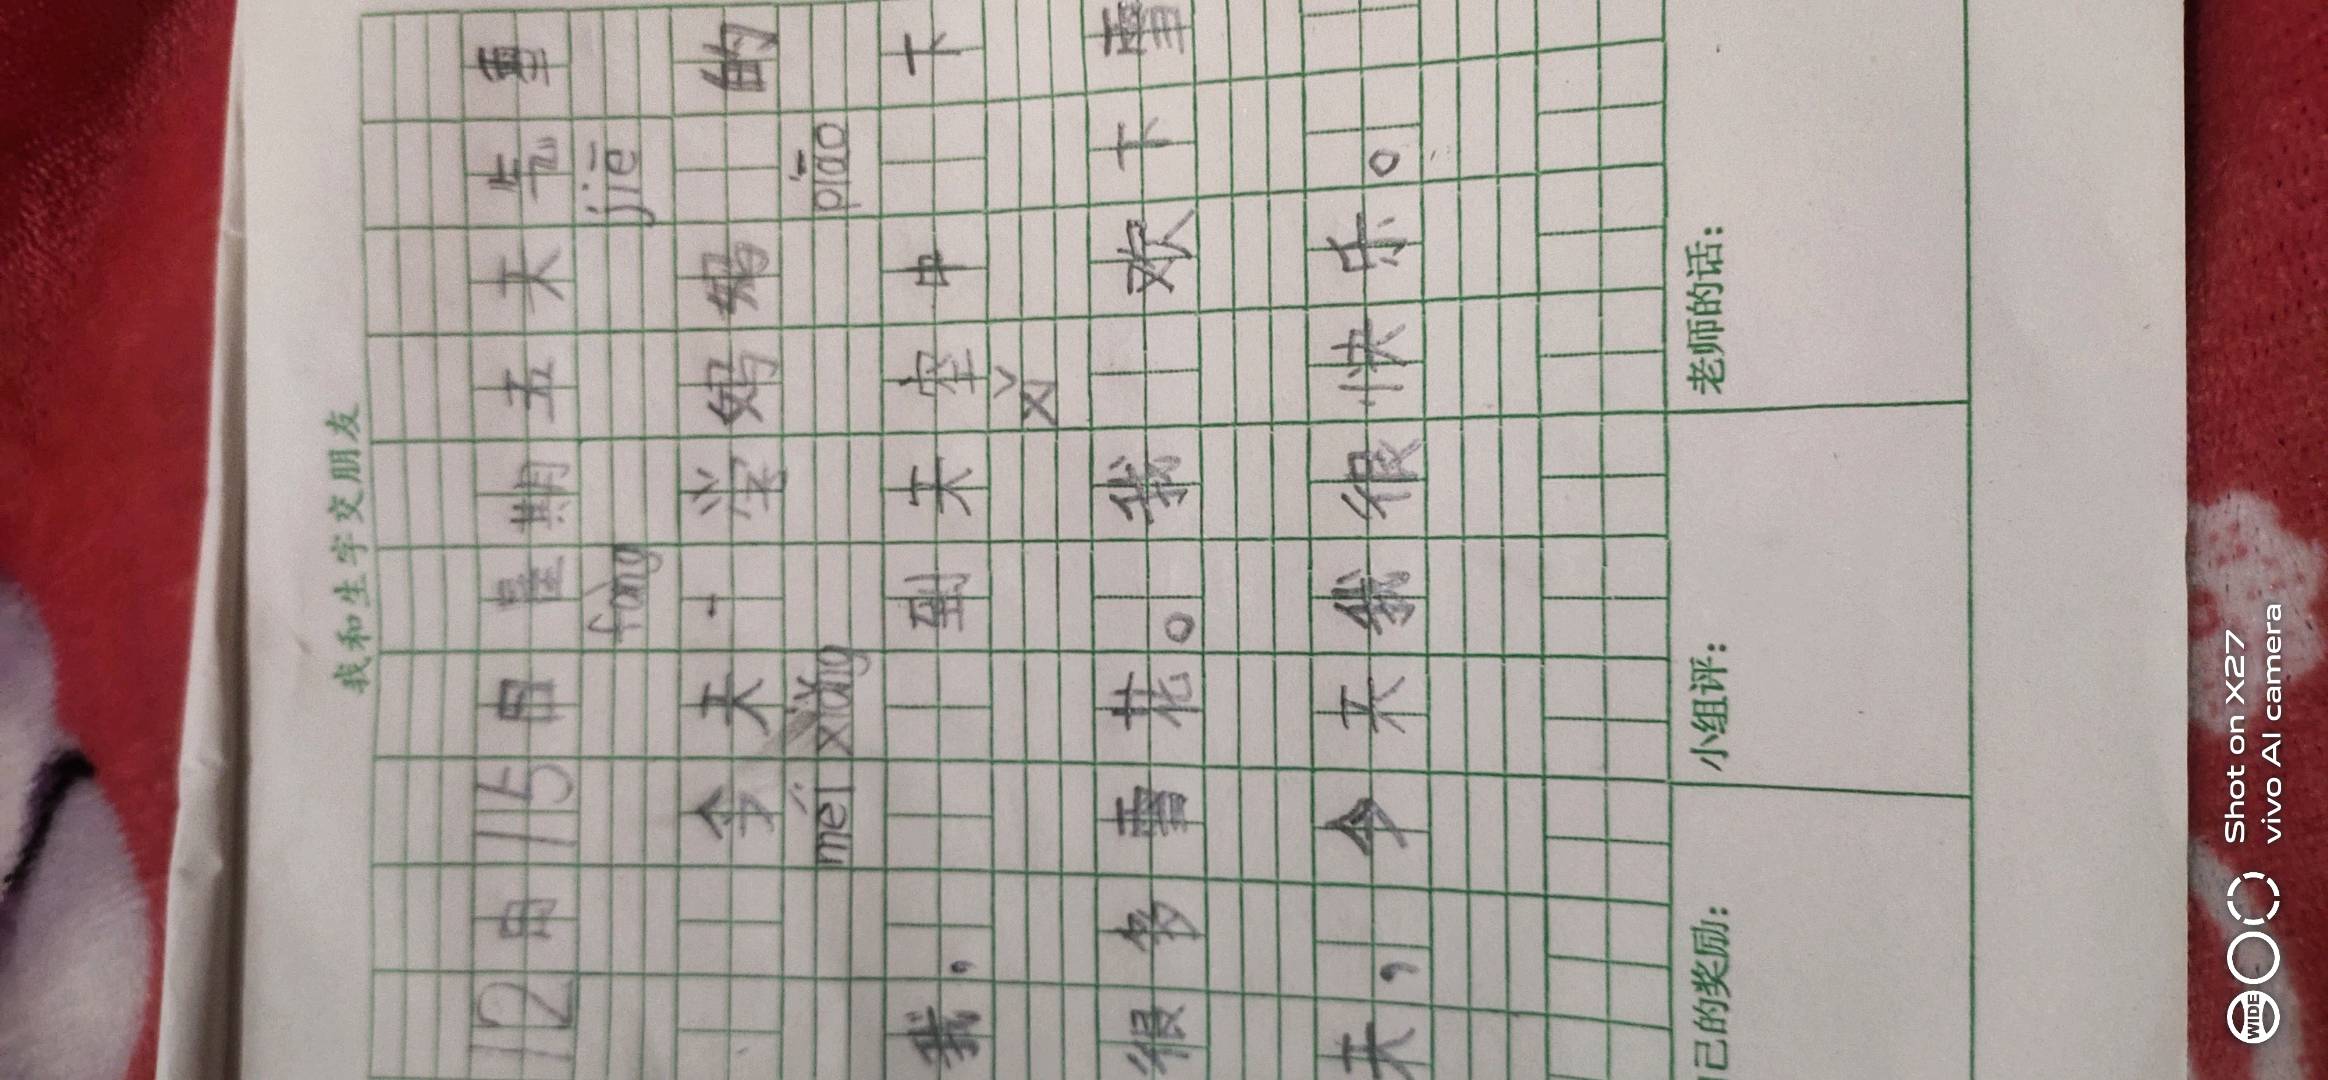 我和生字交朋友
12月15日星期五天气雪
fàng jiē
今天,学妈妈的
měi xiǎng piāo
我,到天空中下
xǐ
很多雪花。我欢下雪
天,今天我很快乐。
己的奖励: 小组评: 老师的话:
Shot on X27
vivo AI camera
WIDE